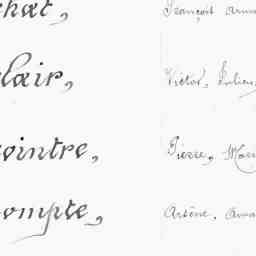 hat, François
lair, Victor, Julien,
ointre, Pierre, Mari
ompte, Arsène, Arma